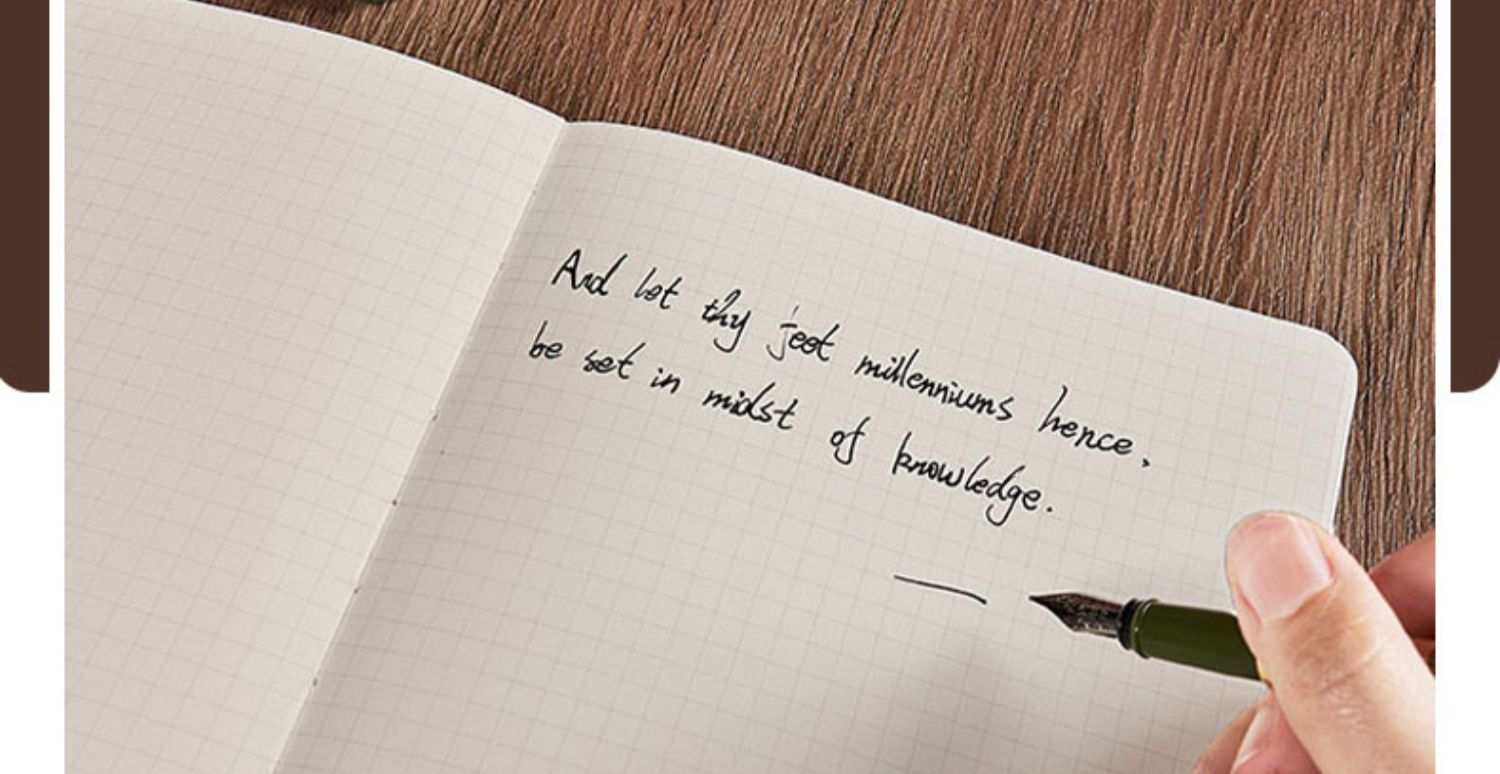 And let thy feet millenniums hence,
be set in midst of knowledge.